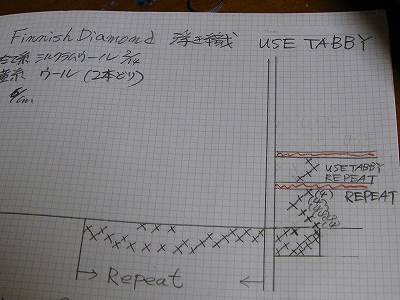 Finnish Diamond 浮き織 USE TABBY
たて糸 ミルクラムウール 2/14
緯糸 ウール (2本どり)
/cm
USE TABBY
REPEAT
REPEAT
(4)
Repeat